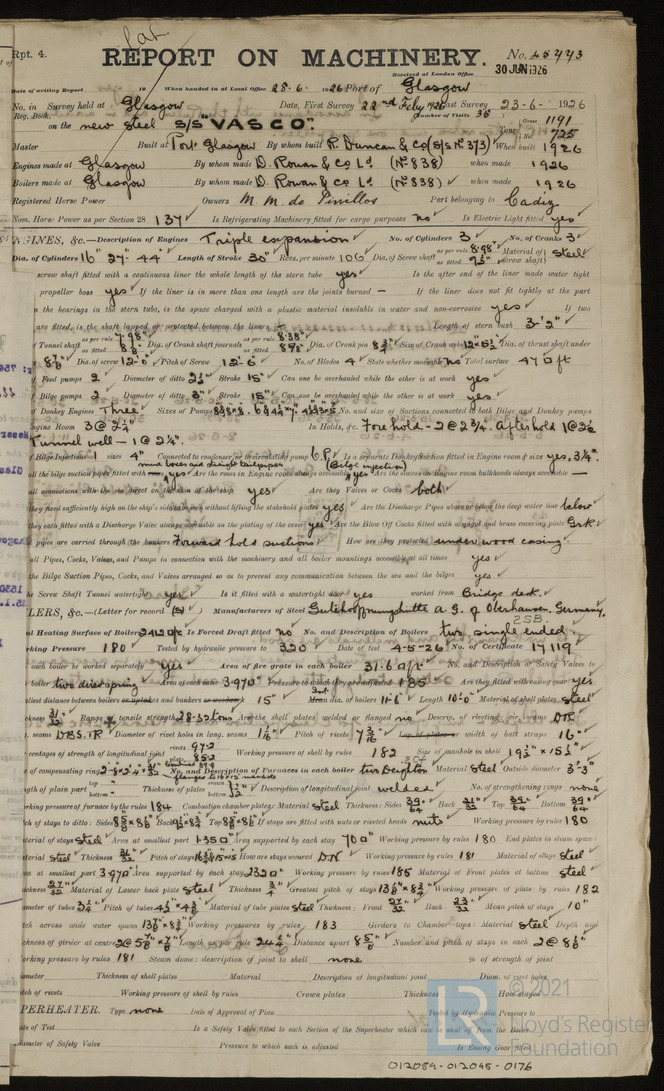 Rpt. 4.
REPORT ON MACHINERY.
No. 45443
Received at London Office
30 JUN 1926
Date of writing Report 19 When handed in at Local Office 28.6.1926 Port of Glasgow
No. in Survey held at Glasgow Date, First Survey 22nd Feby 1926 Last Survey 23-6-1926
Reg. Book. Number of Visits 35
on the new steel S/S "VASCO". Tons Gross 1191 Net 725
Master Built at Port Glasgow By whom built R. Duncan & Co (S/S No 373) When built 1926
Engines made at Glasgow By whom made D. Rowan & Co Ld. (No 838) when made 1926
Boilers made at Glasgow By whom made D. Rowan & Co Ld. (No 838) when made 1926
Registered Horse Power Owners M. M. de Pinillos Port belonging to Cadiz
Nom. Horse Power as per Section 28 137 Is Refrigerating Machinery fitted for cargo purposes no Is Electric Light fitted yes
GINES, &c.—Description of Engines Triple expansion No. of Cylinders 3 No. of Cranks 3
Dia. of Cylinders 16" 27" 44" Length of Stroke 30" Revs. per minute 106 Dia. of Screw shaft as per rule 8.98" as fitted 9½" Material of screw shaft Steel
screw shaft fitted with a continuous liner the whole length of the stern tube yes Is the after end of the liner made water tight
propeller boss yes If the liner is in more than one length are the joints burned — If the liner does not fit tightly at the part
in the bearings in the stern tube, is the space charged with a plastic material insoluble in water and non-corrosive yes If two
are fitted, is the shaft lapped or protected between the liners — Length of stern bush 3'-2"
of Tunnel shaft as per rule 7.98" Dia. of Crank shaft journals as per rule 8.38" Dia. of Crank pin Size of Crank webs Dia. of thrust shaft under
Dia. of screw 12'-0" Pitch of Screw 12'-6 No. of Blades 4 State whether moveable no Total surface 47 □ ft
of Feed pumps 2 Diameter of ditto 2½" Stroke 15" Can one be overhauled while the other is at work yes
of Bilge pumps 2 Diameter of ditto 3" Stroke 15" Can one be overhauled while the other is at work yes
of Donkey Engines Three Sizes of Pumps No. and size of Suctions connected to both Bilge and Donkey pumps
Engine Room 3 @ 2¼" In Holds, &c. Fore hold - 2 @ 2¾. After hold 1 @ 2½
Tunnel well — 1 @ 2¼".
Bilge Injections 1 sizes 4" Connected to condenser or to circulating pump C.P. Is a separate Donkey Suction fitted in Engine room & size yes, 3¼".
all the bilge suction pipes fitted with roses yes Are the roses in Engine room always accessible yes Are the sluices on Engine room bulkheads always accessible —
all connections with the sea direct on the skin of the ship yes Are they Valves or Cocks both
they fixed sufficiently high on the ship's side to be seen without lifting the stokehold plates yes Are the Discharge Pipes above or below the deep water line below
they each fitted with a Discharge Valve always accessible on the plating of the vessel yes Are the Blow Off Cocks fitted with a spigot and brass covering plate
pipes are carried through the bunkers Forward hold suctions How are they protected under wood casing.
all Pipes, Cocks, Valves, and Pumps in connection with the machinery and all boiler mountings accessible at all times yes
the Bilge Suction Pipes, Cocks, and Valves arranged so as to prevent any communication between the sea and the bilges yes
the Screw Shaft Tunnel watertight yes Is it fitted with a watertight door yes worked from Bridge deck.
LERS, &c.—(Letter for record (S)) Manufacturers of Steel Gutehoffnungshutte A.G. of Oberhausen, Germany.
2SB.
al Heating Surface of Boilers 2412 □ft Is Forced Draft fitted no No. and Description of Boilers two, single ended
orking Pressure 180 Tested by hydraulic pressure to 320 Date of test 4-5-26 No. of Certificate 17119
each boiler be worked separately yes Area of fire grate in each boiler 31.6 □ft No. and Description of Safety Valves to
boiler two direct spring Area of each valve 3.970" Pressure to which they are adjusted 185 Are they fitted with easing gear yes
allest distance between boilers or uptakes and bunkers or woodwork 15" dia. of boilers 11'-6" Length 10'-0" Material of shell plates Steel
ckness Range of tensile strength 28-32 tons Are the shell plates welded or flanged no Descrip. of riveting: cir. seams DR
seams DBS. TR Diameter of rivet holes in long. seams Pitch of rivets width of butt straps 16"
centages of strength of longitudinal joint rivets 97.2 plate 85.2 Working pressure of shell by rules 182 Size of manhole in shell 19½" x 15½"
e of compensating ring No. and Description of Furnaces in each boiler two Deighton Material Steel Outside diameter 3'-3"
gth of plain part Thickness of plates Description of longitudinal joint welded No. of strengthening rings none
orking pressure of furnace by the rules 184 Combustion chamber plates: Material Steel Thickness: Sides Back Top Bottom
ch of stays to ditto: Sides Back Top If stays are fitted with nuts or riveted heads nuts Working pressure by rules 180
aterial of stays Steel Area at smallest part 1.350" Area supported by each stay 700" Working pressure by rules 180 End plates in steam space:
aterial Steel Thickness Pitch of stays How are stays secured DN Working pressure by rules 181 Material of stays Steel
ea at smallest part 3.970" Area supported by each stay 2320" Working pressure by rules 185 Material of Front plates at bottom steel
ickness Material of Lower back plate Steel Thickness Greatest pitch of stays Working pressure of plate by rules 182
ameter of tubes 3¼" Pitch of tubes Material of tube plates Steel Thickness: Front Back Mean pitch of stays 10"
ch across wide water spaces Working pressures by rules 183 Girders to Chamber tops: Material Steel Depth and
ckness of girder at centre Length as per rule Distance apart Number and pitch of stays in each
orking pressure by rules 181 Steam dome: description of joint to shell none % of strength of joint
ameter Thickness of shell plates Material Description of longitudinal joint Diam. of rivet holes
tch of rivets Working pressure of shell by rules Crown plates Thickness How stayed
PERHEATER. Type none Date of Approval of Plan Tested by Hydraulic Pressure to
ate of Test Is a Safety Valve fitted to each Section of the Superheater which can be shut off from the Boiler
iameter of Safety Valve Pressure to which each is adjusted Is Easing Gear fitted
© 2021
LR
Lloyd's Register
Foundation
012089-012095-0176